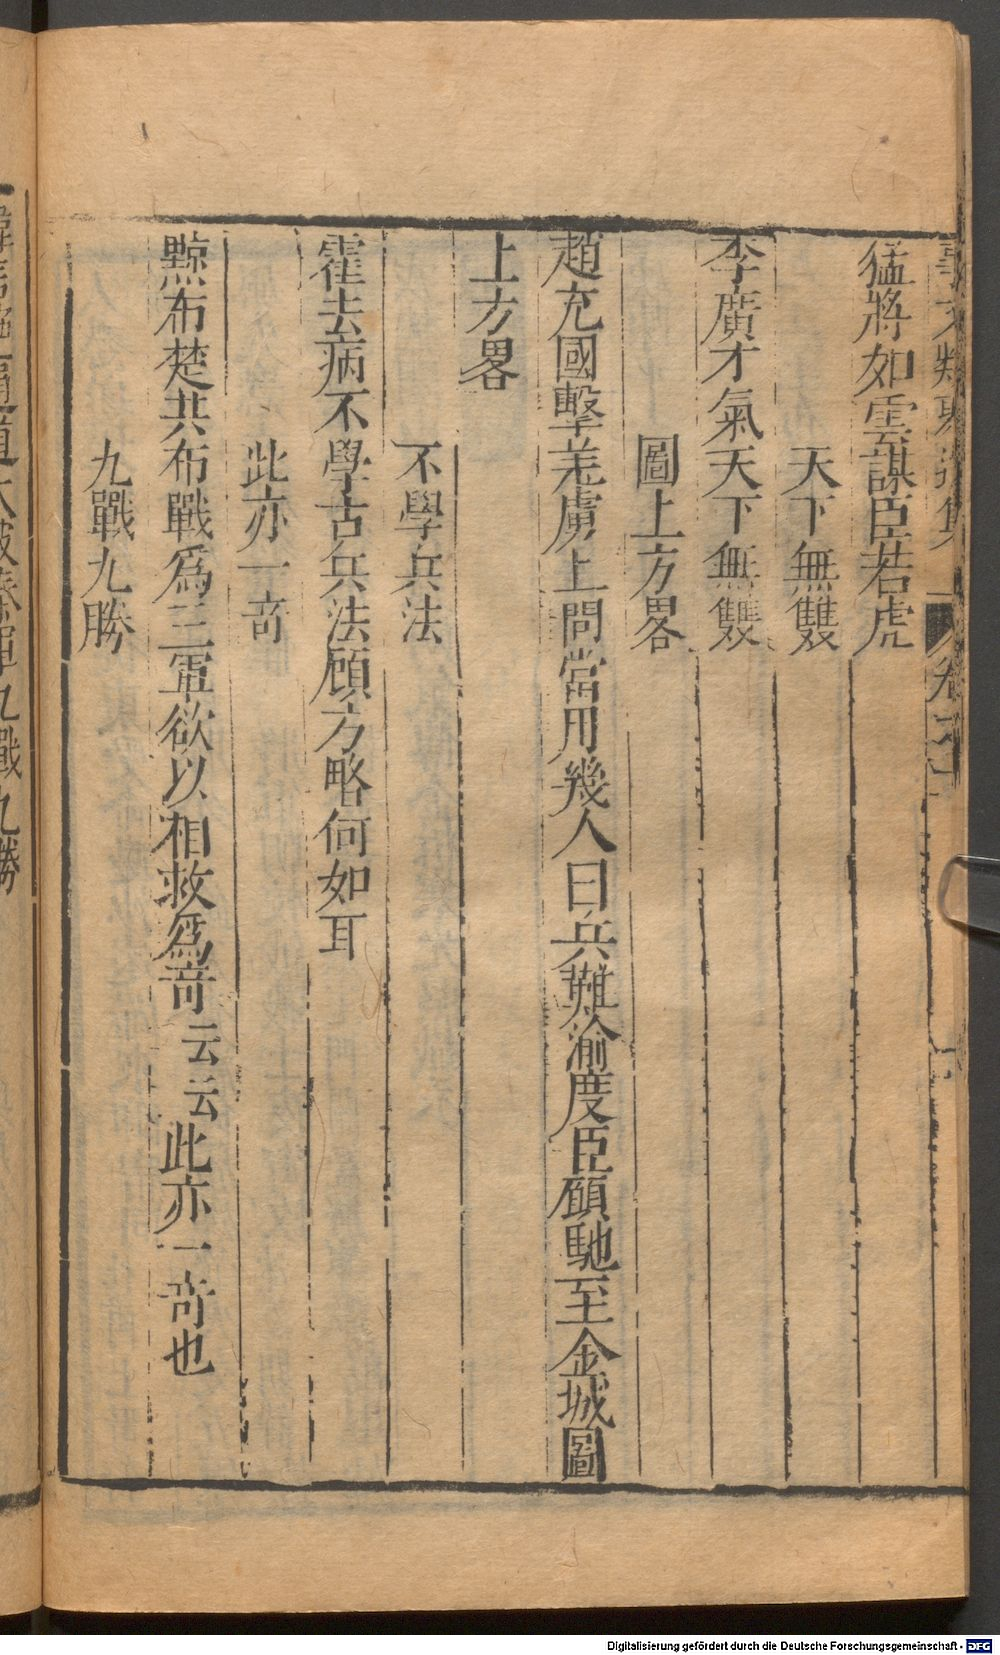 猛將如雲謀臣若虎
天下無雙
李廣才氣天下無雙
圖上方畧
趙充國擊羌虜上問當用幾人曰兵難渝度臣願馳至金城圖
上方畧
不學兵法
霍去病不學古兵法顧方略何如耳
此亦一竒
黥布楚共布戰爲三軍欲以相救爲竒云云此亦一竒也
九戰九勝
九戰九勝
Digitalisierung gefördert durch die Deutsche Forschungsgemeinschaft - DFG